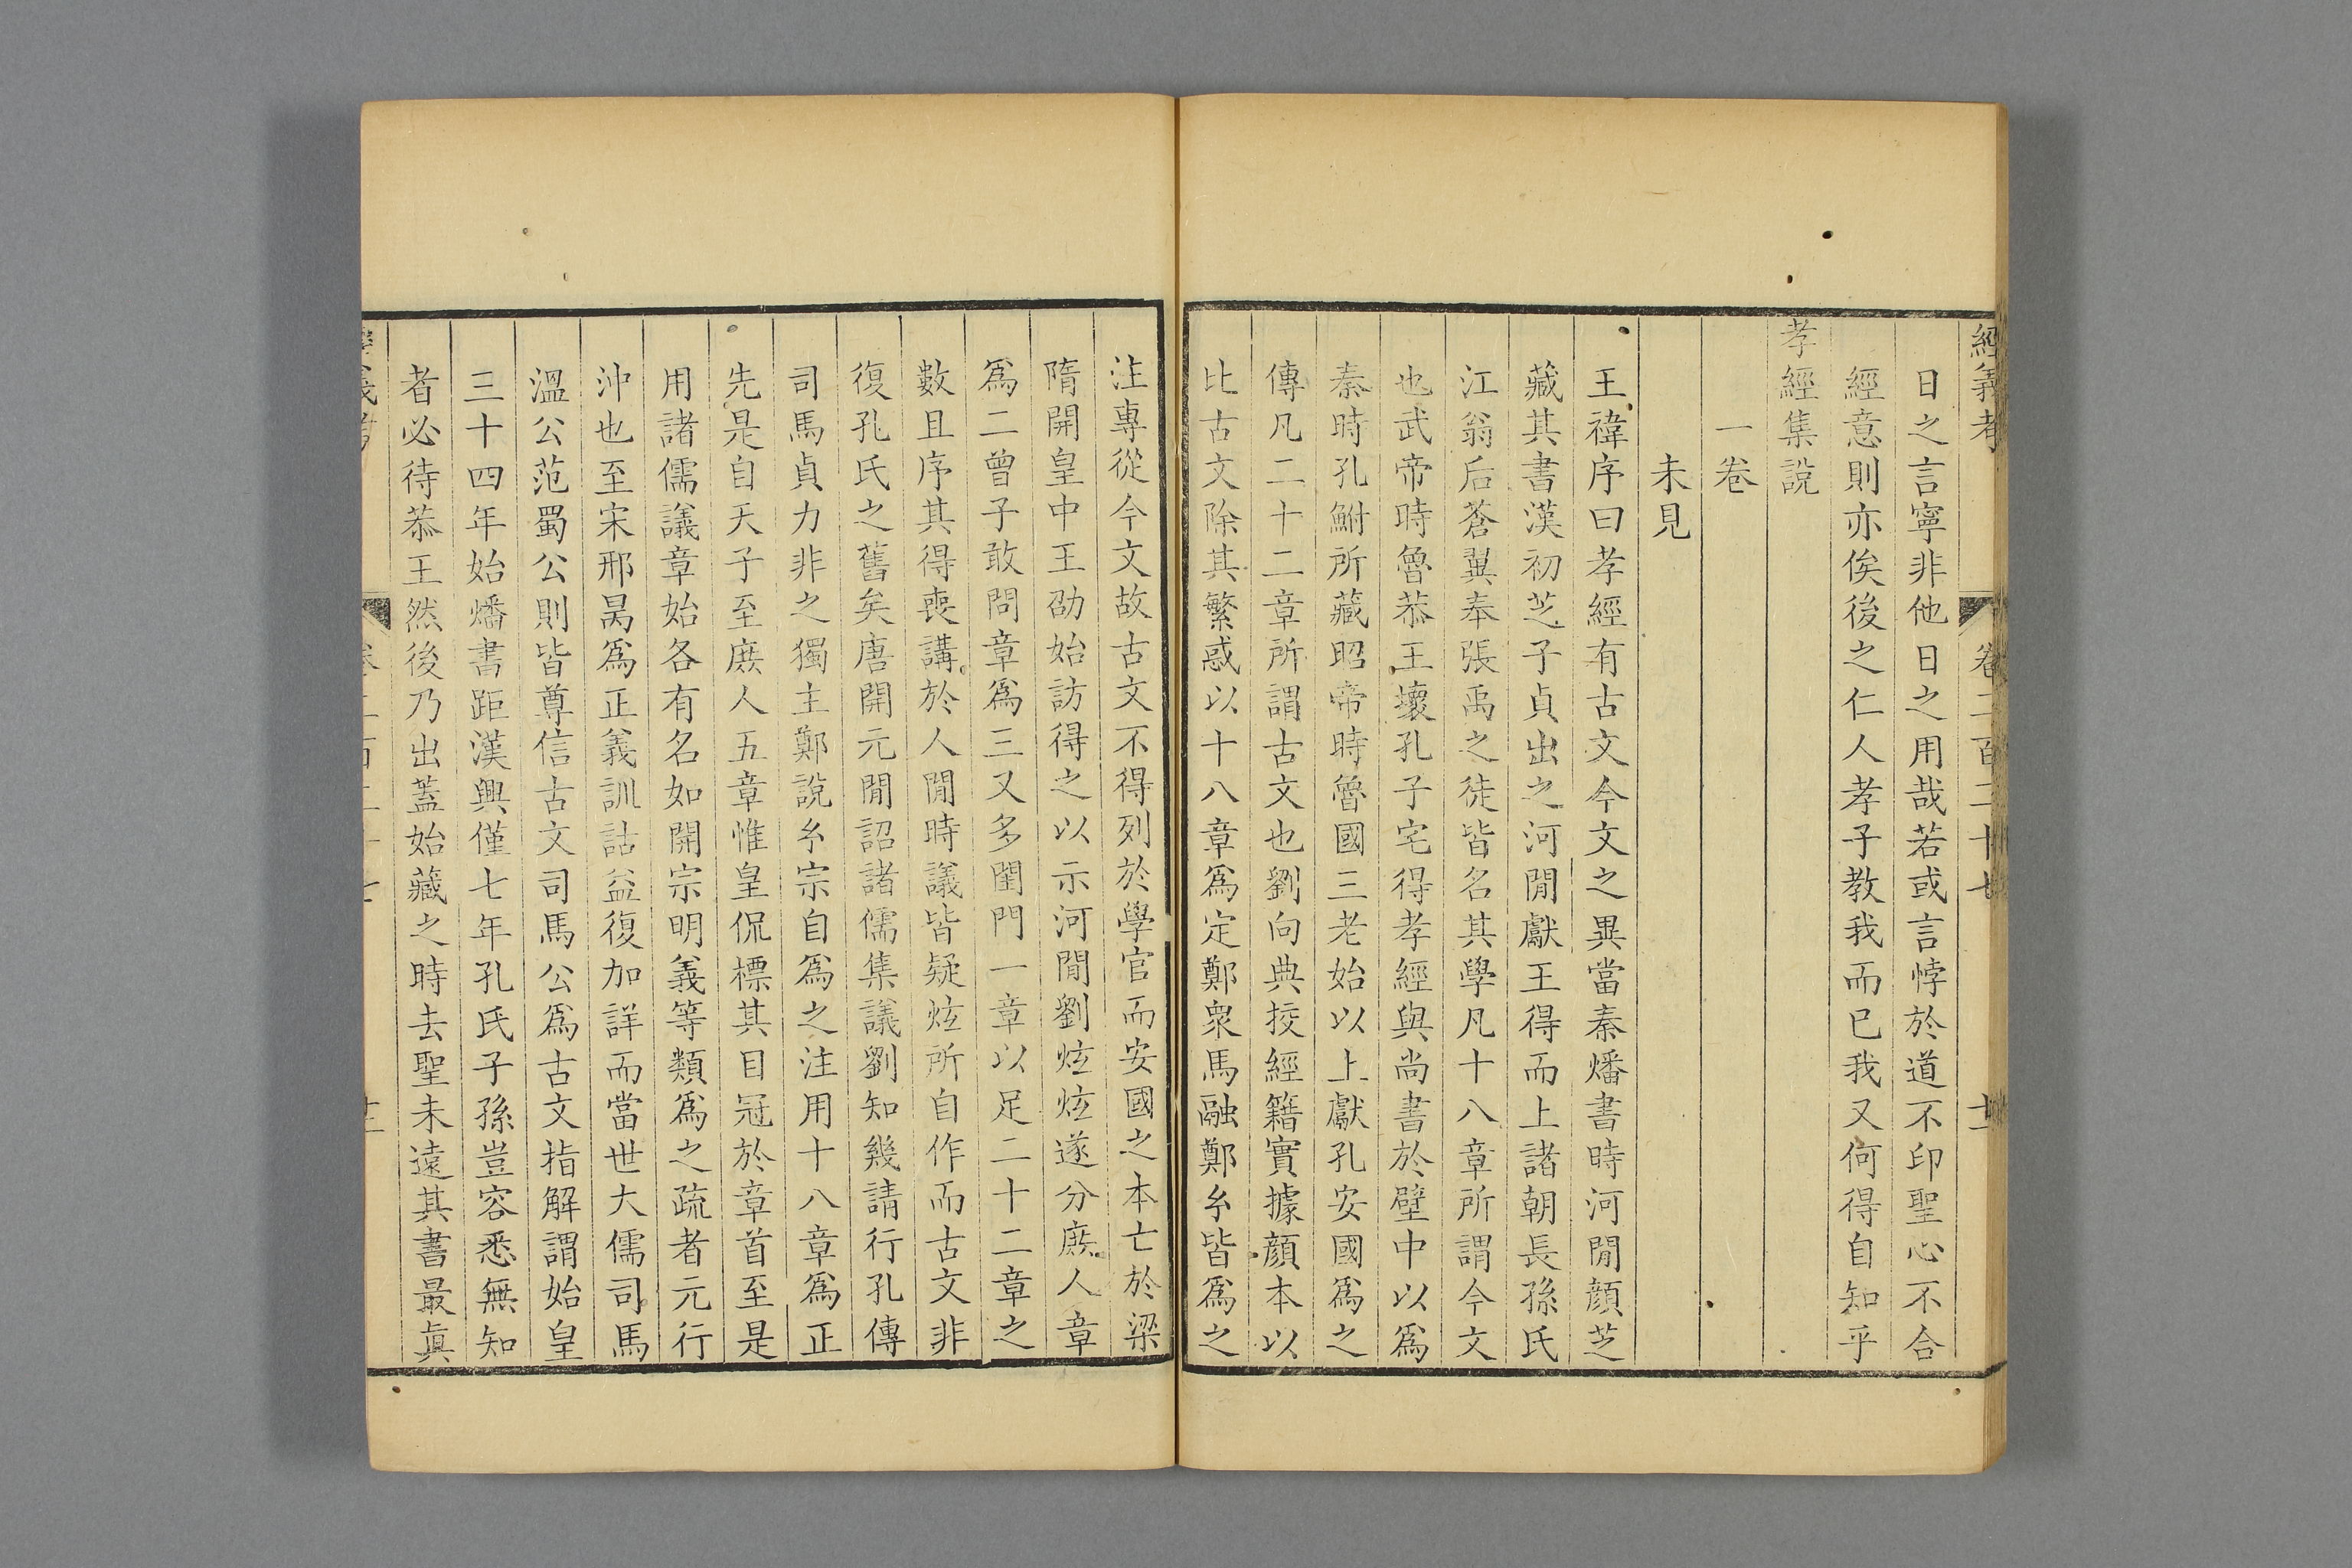 經義考　卷二百二十七　十一
日之言寧非他日之用哉若或言悖於道不印聖心不合
經意則亦俟後之仁人孝子教我而已我又何得自知乎
孝經集說
一卷
未見
王禕序曰孝經有古文今文之異當秦燔書時河閒顔芝
藏其書漢初芝子貞出之河閒獻王得而上諸朝長孫氏
江翁后蒼翼奉張禹之徒皆名其學凡十八章所謂今文
也武帝時魯恭王壞孔子宅得孝經與尚書於壁中以爲
秦時孔鮒所藏昭帝時魯國三老始以上獻孔安國爲之
傳凡二十二章所謂古文也劉向典挍經籍實據顔本以
比古文除其繁惑以十八章爲定鄭衆馬融鄭𤣥皆爲之
注專從今文故古文不得列於學官而安國之本亡於梁
隋開皇中王劭始訪得之以示河閒劉炫炫遂分庶人章
爲二曾子敢問章爲三又多閨門一章以足二十二章之
數且序其得喪講於人閒時議皆疑炫所自作而古文非
復孔氏之舊矣唐開元閒詔諸儒集議劉知幾請行孔傳
司馬貞力非之獨主鄭說𤣥宗自爲之注用十八章爲正
先是自天子至庶人五章惟皇侃標其目冠於章首至是
用諸儒議章始各有名如開宗明義等類爲之疏者元行
沖也至宋邢昺爲正義訓詁益復加詳而當世大儒司馬
溫公范蜀公則皆尊信古文司馬公爲古文指解謂始皇
三十四年始燔書距漢興僅七年孔氏子孫豈容悉無知
者必待恭王然後乃出蓋始藏之時去聖未遠其書最眞